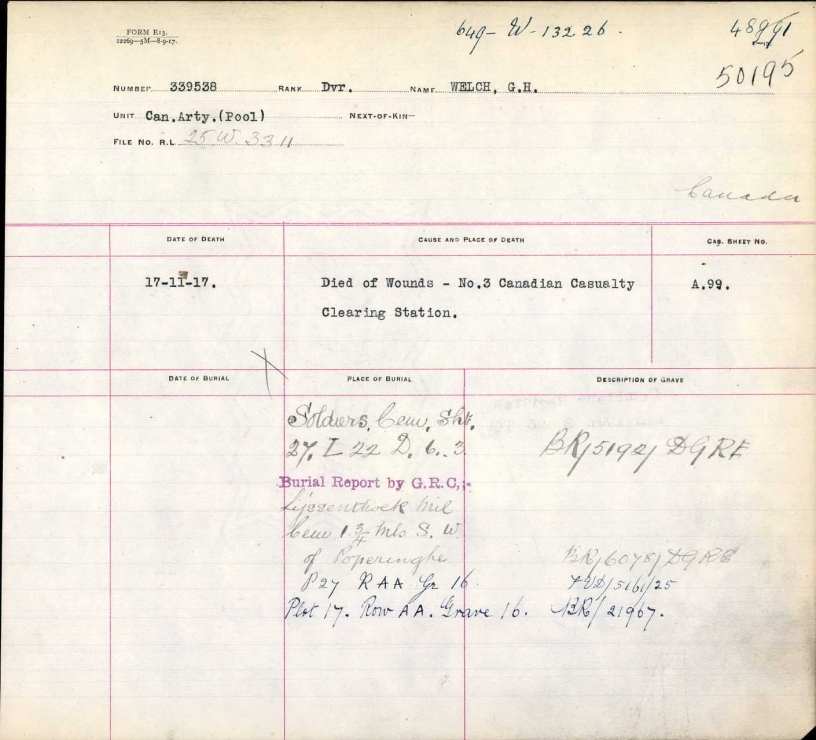 FORM E13.
12269—5M—8-9-17.
649-W-13226.
48991
50195
NUMBER 339538 RANK Dvr. NAME WELCH, G.H.
UNIT Can.Arty.(Pool) NEXT-OF-KIN
FILE NO. R.L. 25.W.3311
Canada
DATE OF DEATH CAUSE AND PLACE OF DEATH CAS. SHEET NO.
17-11-17. Died of Wounds - No.3 Canadian Casualty A.99.
Clearing Station.
DATE OF BURIAL PLACE OF BURIAL DESCRIPTION OF GRAVE
Soldiers, Cem, Sht.
27. L 22 D. 6. 3. BR/5192/DGRE
Burial Report by G.R.C,:-
Lijssenthoek Mil
Cem 1 3/4 Mls S. W
of Poperinghe BR/6078/DGRE
P27 R AA Gr 16. /5161/25
Plot 17. Row AA. Grave 16. BR/21967.